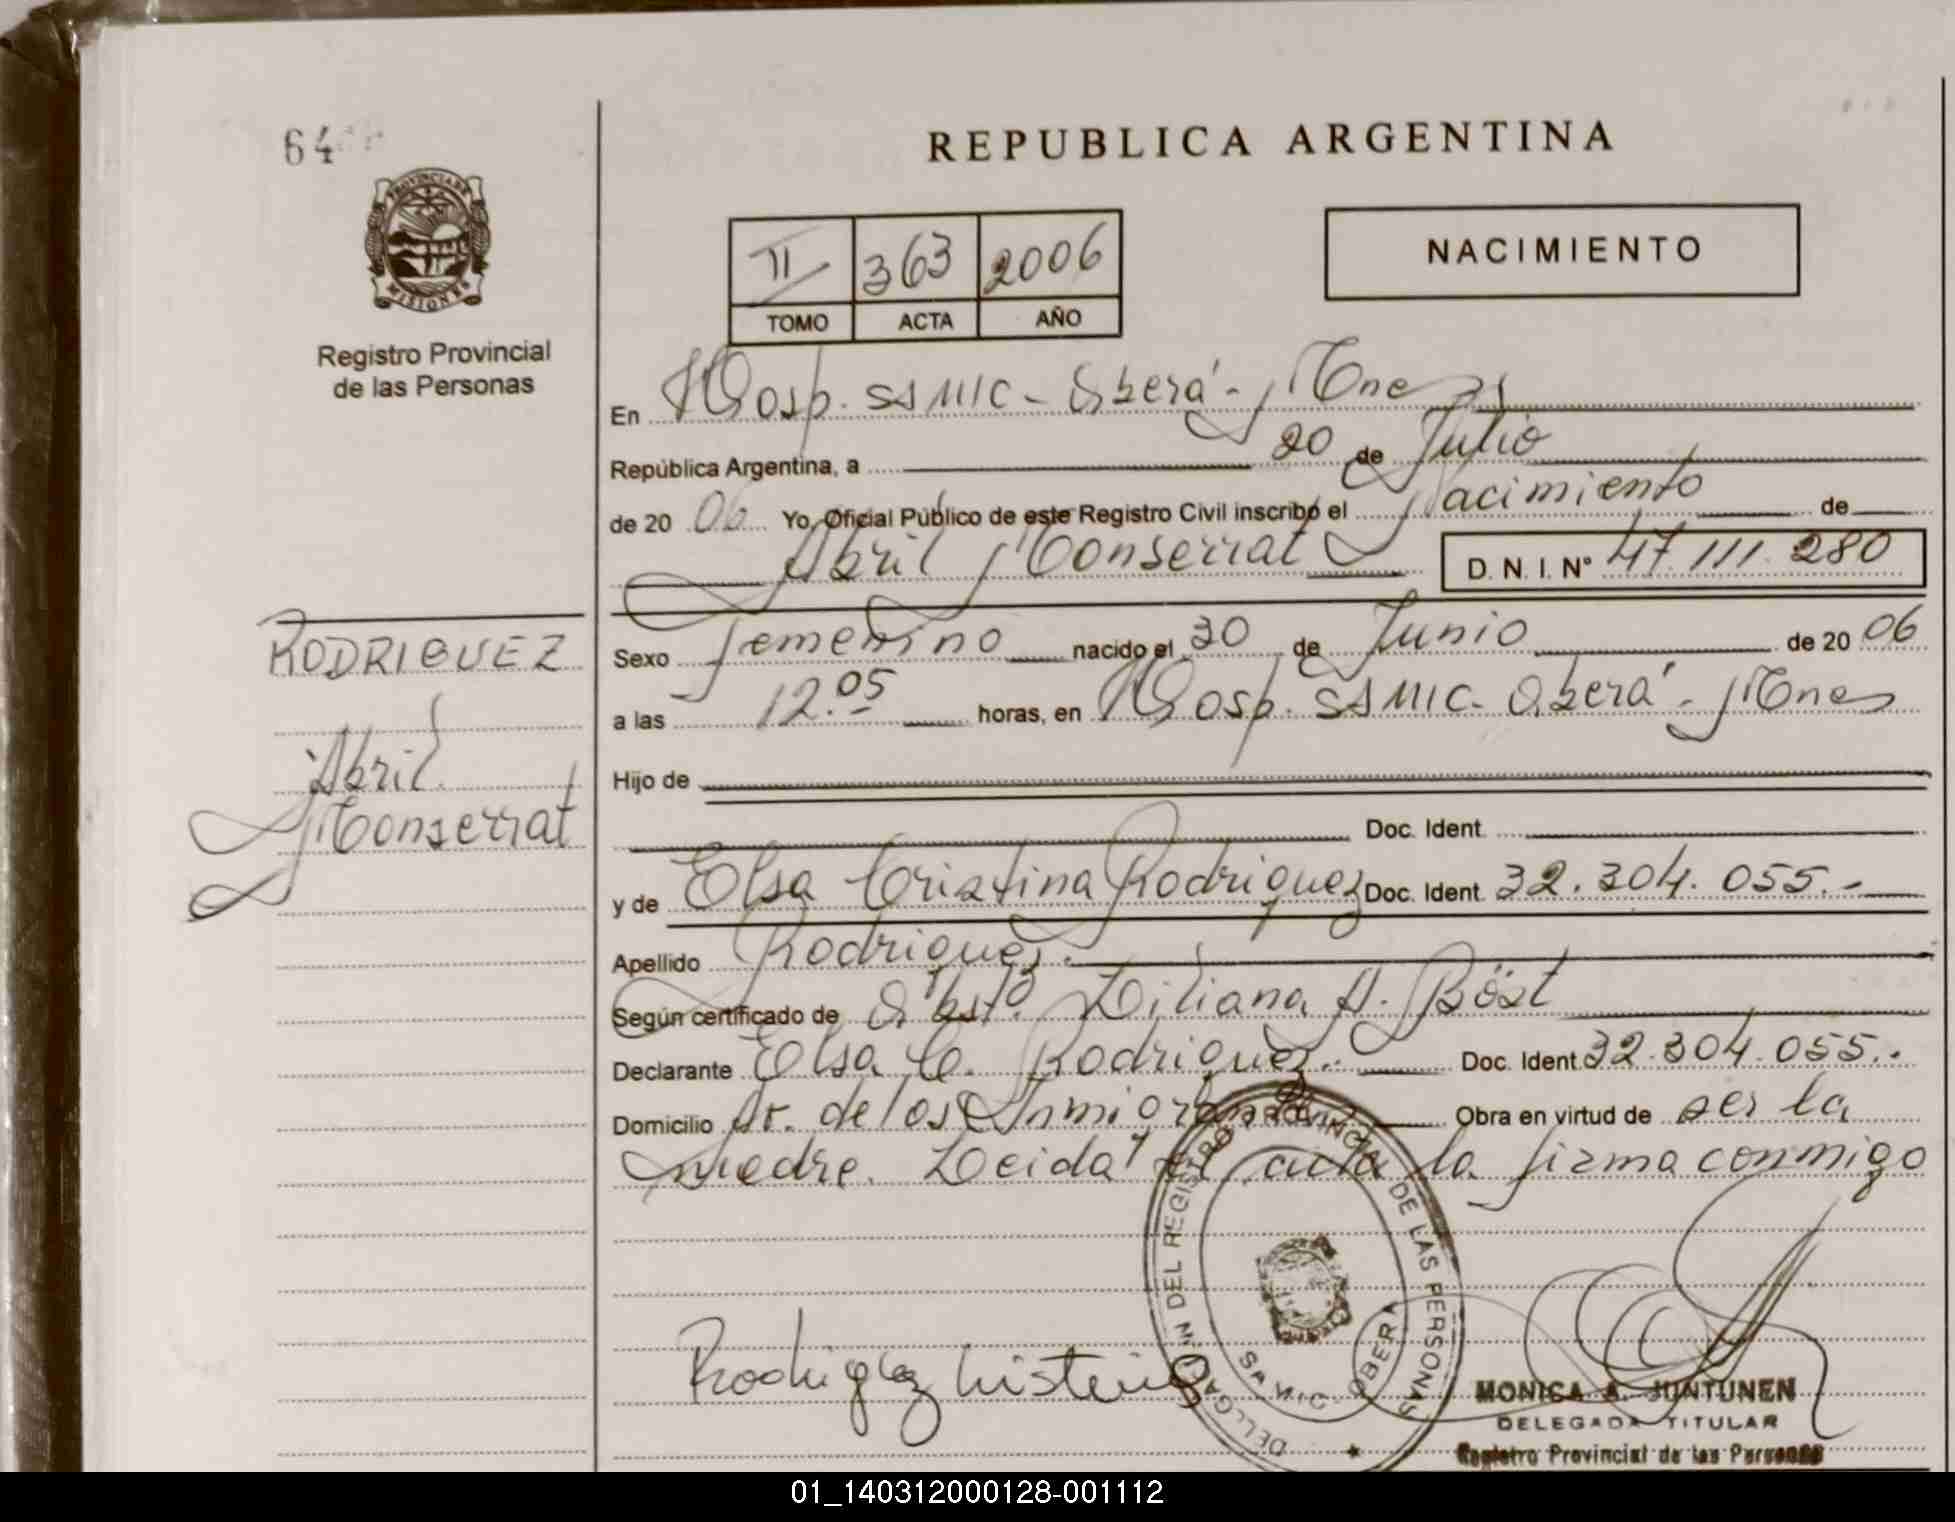 64
PROVINCIA DE
MISIONES
Registro Provincial
de las Personas
RODRIGUEZ
Abril
Monserrat
REPUBLICA ARGENTINA
II 363 2006
TOMO ACTA AÑO
NACIMIENTO
En Hosp. SAMIC - Oberá - Mnes
República Argentina, a 20 de Julio
de 20 06 Yo, Oficial Público de este Registro Civil inscribo el Nacimiento de
Abril Monserrat D. N. I. N° 47.111.280
Sexo femenino nacido el 30 de Junio de 20 06
a las 12.05 horas, en Hosp. SAMIC - Oberá - Mnes
Hijo de
Doc. Ident.
y de Elsa Cristina Rodriguez Doc. Ident. 32.304.055.-
Apellido Rodriguez.
Según certificado de Obst. Liliana A. Böst
Declarante Elsa C. Rodriguez.- Doc. Ident. 32.304.055.-
Domicilio Av. de los Obra en virtud de ser la
madre. Leída el acta la firma conmigo
DELEGACION DEL REGISTRO PROVINCIAL DE LAS PERSONAS
SAMIC OBERA
Rodriguez
MONICA A. JUNTUNEN
DELEGADA TITULAR
Registro Provincial de las Personas
01_140312000128-001112